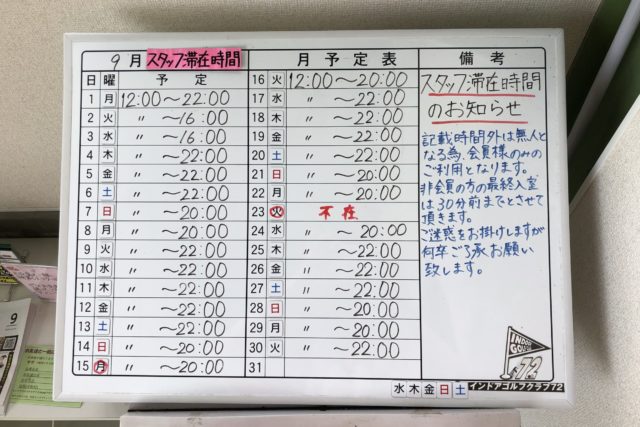 9月 スタッフ滞在時間 月予定表 備考
日 曜 予定
1 月 12:00〜22:00
2 火 〃 〜16:00
3 水 〃 〜16:00
4 木 〃 〜22:00
5 金 〃 〜22:00
6 土 〃 〜22:00
7 日 〃 〜20:00
8 月 〃 〜20:00
9 火 〃 〜22:00
10 水 〃 〜22:00
11 木 〃 〜22:00
12 金 〃 〜22:00
13 土 〃 〜22:00
14 日 〃 〜20:00
15 月 〃 〜20:00
16 火 12:00〜20:00
17 水 〃 〜22:00
18 木 〃 〜22:00
19 金 〃 〜22:00
20 土 〃 〜22:00
21 日 〃 〜20:00
22 月 〃 〜20:00
23 火 不在
24 水 〃 〜20:00
25 木 〃 〜22:00
26 金 〃 〜22:00
27 土 〃 〜22:00
28 日 〃 〜20:00
29 月 〃 〜20:00
30 火 〃 〜22:00
31
スタッフ滞在時間
のお知らせ
記載時間外は無人と
なる為、会員様のみの
ご利用となります。
非会員の方の最終入室
は30分前までとさせて
頂きます。
ご迷惑をお掛けしますが
何卒ご了承お願い
致します。
INDOOR
GOLF
CLUB
72
水 木 金 日 土
インドアゴルフクラブ72
9